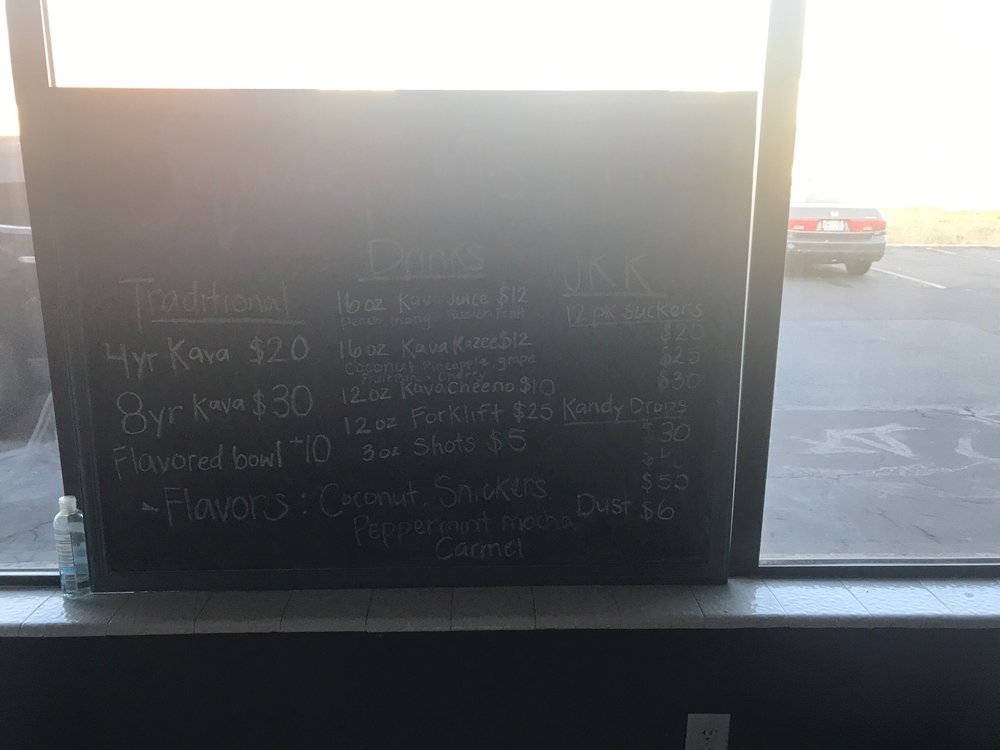 Traditional
4yr Kava $20
8yr Kava $30
Flavored bowl +10
Drinks
16oz Kav Juice $12
Passion Fruit
16oz Kava Kazee $12
Coconut, Pineapple, grape
Cherry
12oz Kavacheeno $10
12oz Forklift $25
3oz Shots $5
JKK
12 pk suckers
$20
$25
$30
Kandy Drops
$30
$50
Dust $6
Flavors: Coconut, Snickers,
Peppermint mocha
Carmel